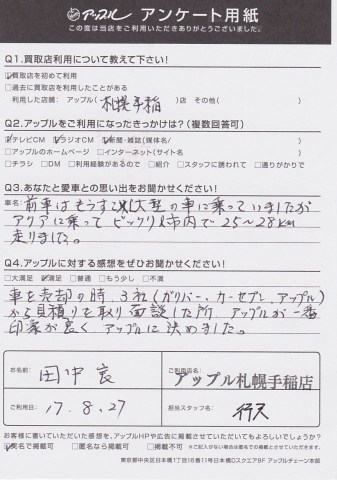 アップル アンケート用紙
この度は当店をご利用いただきありがとうございました。
Q1.買取店利用について教えて下さい!
☑買取店を初めて利用
□過去に買取店を利用したことがある
利用した店舗: アップル(札幌手稲)店 その他( )
Q2.アップルをご利用になったきっかけは?(複数回答可)
☑テレビCM ☑ラジオCM ☑新聞・雑誌(媒体名/ )
□アップルのホームページ □インターネット(サイト名 )
□チラシ □DM □利用経験があるので □紹介 □スタッフに誘われて □通りがかりで
Q3.あなたと愛車との思い出をお聞かせください!
車名: 前車はもうすこし大型の車に乗っていましたが
アクアに乗って ビックリ!市内で25〜28km
走りました。
Q4.アップルに対する感想をぜひお聞かせください!
□大満足 ☑満足 □普通 □もう少し □不満
車を売却の時、3社(ガリバー、カーセブン、アップル)
から見積りを取り面談した所 アップルが一番
印象が良く アップルに決めました。
お名前: 田中良
ご利用店名: アップル札幌手稲店
ご利用日: 17.8.27
担当スタッフ名: 行天
お客様に書いていただいた感想を、アップルHPや広告に掲載させていただいてもよろしいでしょうか?
☑実名で掲載可 □匿名なら掲載可 □掲載不可 ※ご記入がない場合は匿名での掲載とさせていただきます。
東京都中央区日本橋1丁目16番11号日本橋Dスクエア8F アップルチェーン本部